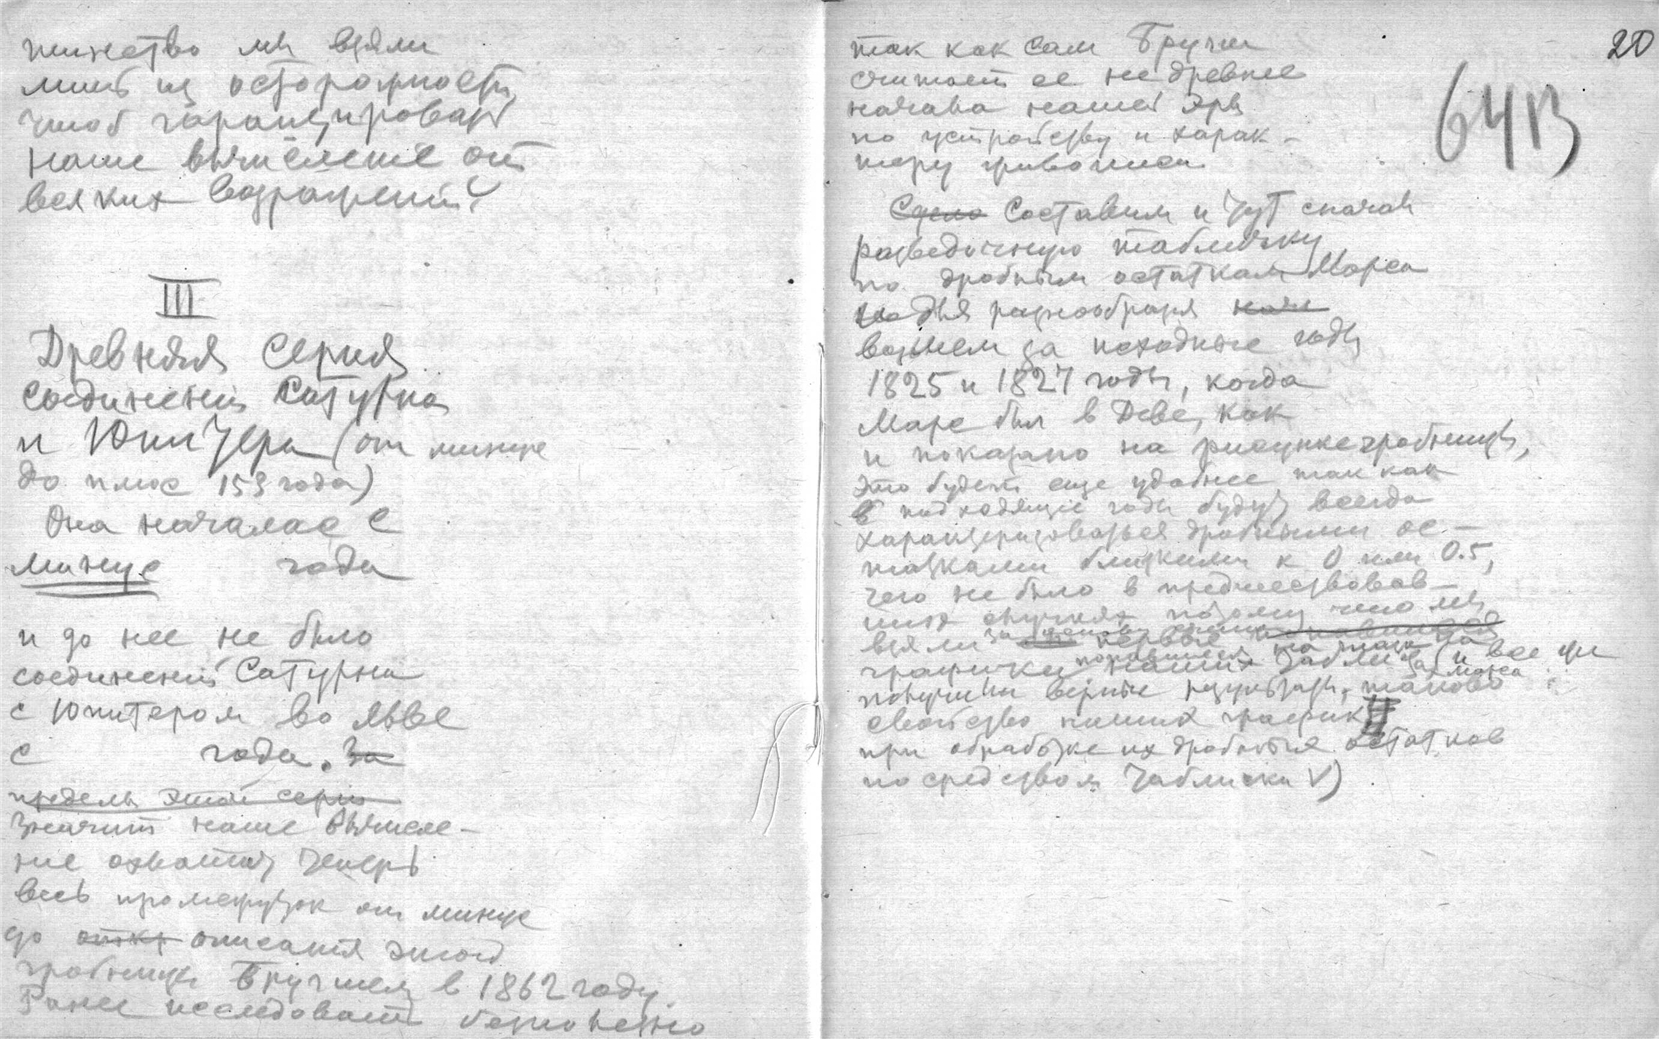 жинство мы взяли
лишь из осторожности,
чтоб гарантировать
наше вычисление от
всяких возражений?
III
Древняя серия
соединений Сатурна
и Юпитера (от минус
до плюс 153 года)
Она началась с
минус года
и до нее не было
соединений Сатурна
с Юпитером во Льве
с года. За
пределы этой серии
Значит наше вычисле-
ние охватит теперь
весь промежуток от минус
до откр описания этой
гробницы Бругшем в 1862 году.
Ранее исследовать бесполезно
20
64В
так как сам Бругш
считает ее не древнее
начала нашей эры
по устройству и харак-
теру живописи.
Сдела Составим и тут сначала
разведочную табличку
по дробным остаткам Марса
Но для разнообразия
возьмем за исходные годы
1825 и 1827 годы, когда
Марс был в Деве, как
и показано на рисунке гробницы,
это будет еще удобнее так как
в подходящие годы будут всегда
характеризоваться дробными ос-
татками близкими к 0 или 0.5,
чего не было в предшествовав-
ших случаях потому что мы
взяли первые
графики попавшиеся наших таблиц и все же
Марса
получили верные результаты. таково
свойство наших график
при обработке их дробных остатков
посредством таблички V)